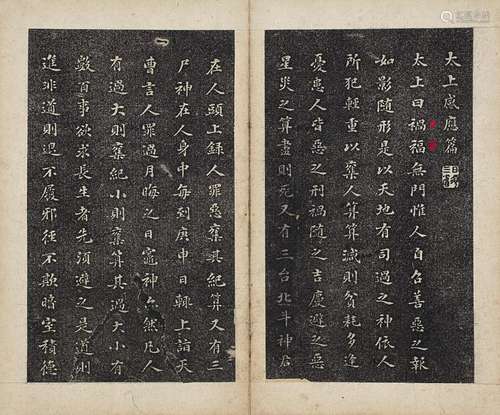 太上感應篇
太上曰禍福無門惟人自召善惡之報
如影隨形是以天地有司過之神依人
所犯輕重以奪人算算減則貧耗多逢
憂患人皆惡之刑禍隨之吉慶避之惡
星災之算盡則死又有三台北斗神君
在人頭上錄人罪惡奪其紀算又有三
尸神在人身中每到庚申日輒上詣天
曹言人罪過月晦之日竈神亦然凡人
有過大則奪紀小則奪算其過大小有
數百事欲求長生者先須避之是道則
進非道則退不履邪徑不欺暗室積德